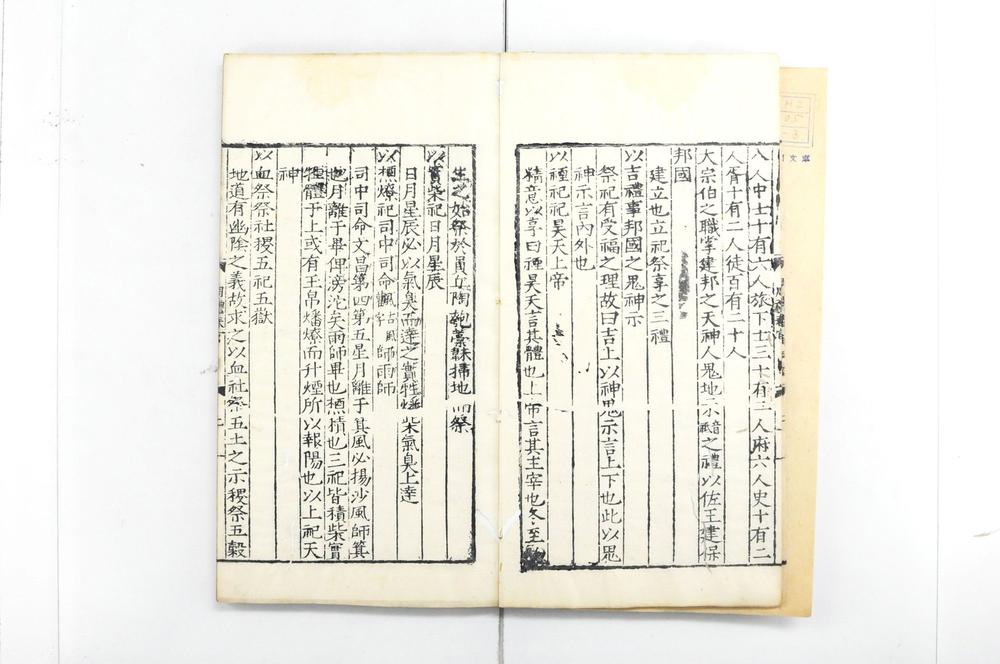 人中士十有六人旅下士三十有二人府六人史十有二
人胥十有二人徒百有二十人
大宗伯之職掌建邦之天神人鬼地示之禮以佐王建保
邦國
建立也立祀祭享之三禮
以吉禮事邦國之鬼神示
祭祀有受福之理故曰吉上以神鬼示言上下也此以鬼
神示言內外也
以禋祀祀昊天上帝
精意以享曰禋昊天言其體也上帝言其主宰也冬至
生之始祭於員丘陶匏藁秣掃地而祭
以實柴祀日月星辰
日月星辰必以氣臭而達之實牲燔柴氣臭上達
以槱燎祀司中司命飌師雨師
司中司命文昌第四第五星月離于箕風必揚沙風師箕
也月離于畢俾滂沱矣雨師畢也槱積也三祀皆積柴實
牲體于上或有玉帛燔燎而升煙所以報陽也以上祀天
神
以血祭祭社稷五祀五嶽
地道有幽陰之義故求之以血社祭五土之示稷祭五穀